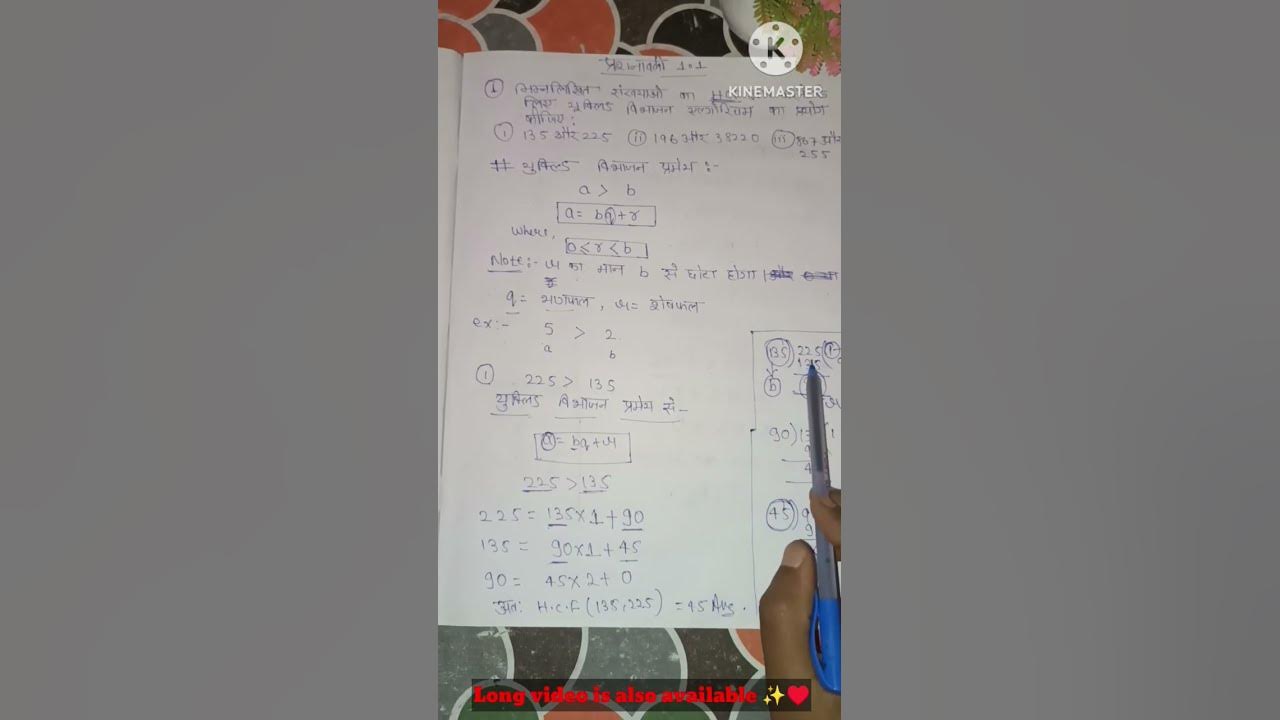 प्रश्नावली 1.1
KINEMASTER
① निम्नलिखित संख्याओं का
लिए युक्लिड विभाजन एल्गोरिथम का प्रयोग
कीजिए:
ⓘ 135 और 225 ⓘⓘ 196 और 38220 ⓘⓘⓘ 867 और
255
# युक्लिड विभाजन प्रमेय :-
a > b
a = bq + r
where,
0 ≤ r < b
Note:- r का मान b से छोटा होगा।
q = भागफल, r = शेषफल
ex:- 5 > 2
a b
① 225 > 135
युक्लिड विभाजन प्रमेय से-
a = bq + r
225 > 135
225 = 135 × 1 + 90
135 = 90 × 1 + 45
90 = 45 × 2 + 0
अतः H.C.F (135, 225) = 45 Ans.
135) 225 (1
b
90)
45)
Long video is also available ✨❤️